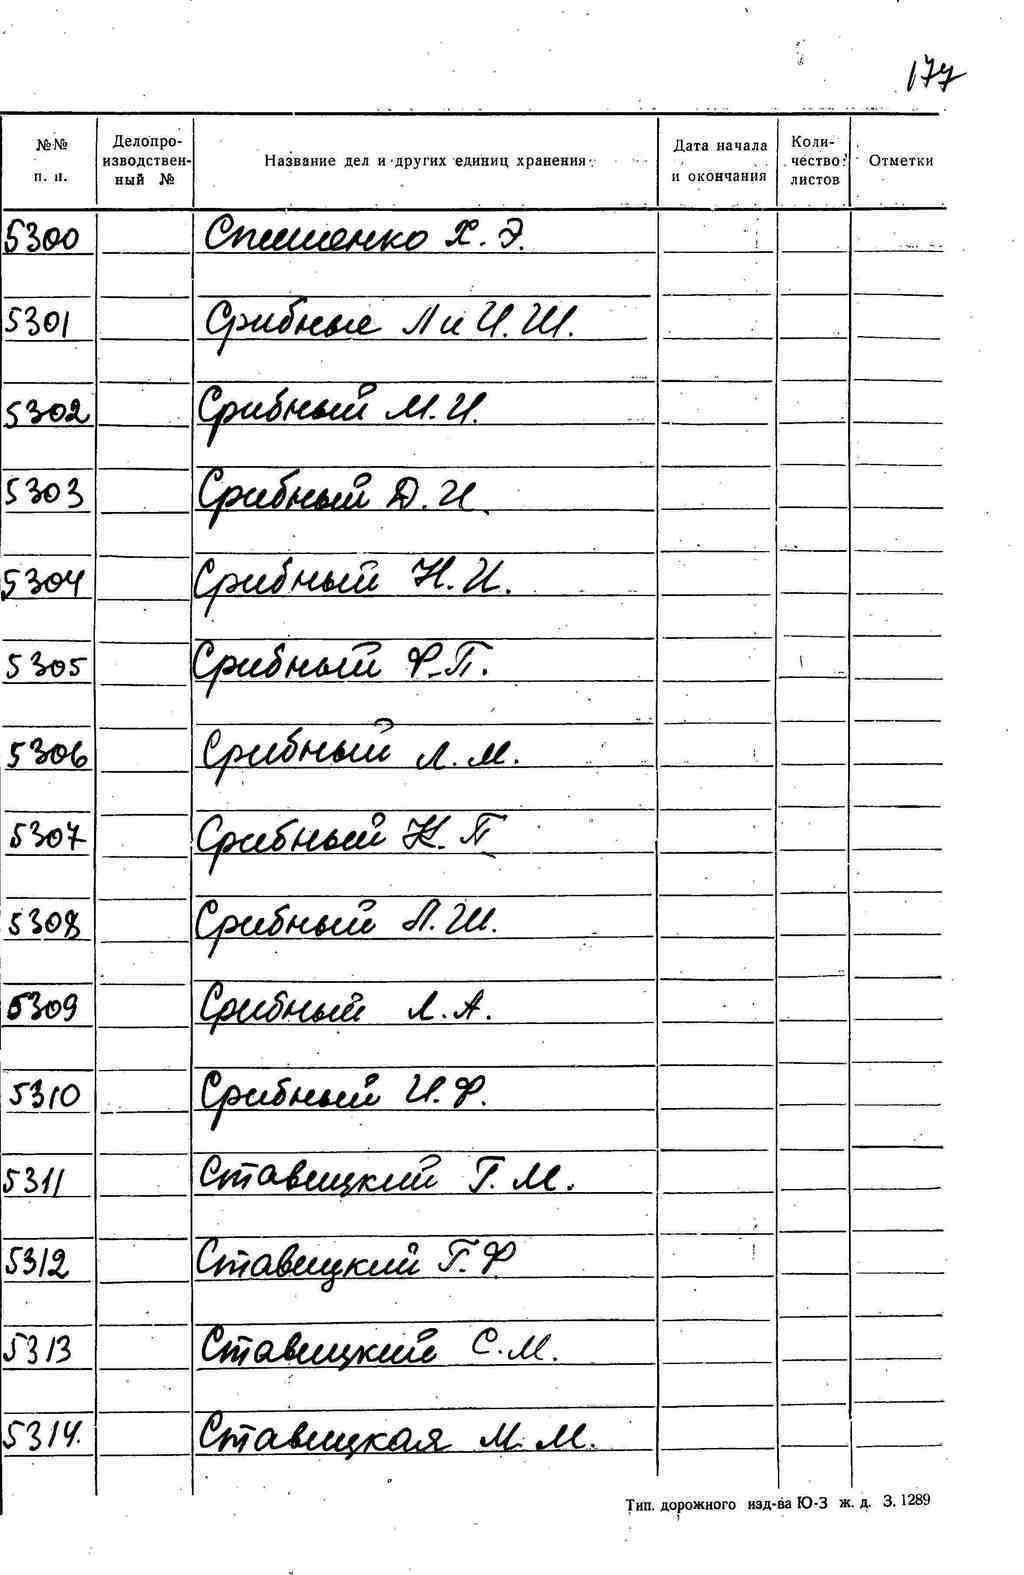 177
№№ п. п. Делопроизводственный № Название дел и других единиц хранения Дата начала и окончания Количество листов Отметки
5300 Спишенко Х. Э.
5301 Срибные Л и И. Ш.
5302 Срибный М. И.
5303 Срибный Д. И.
5304 Срибный Н. И.
5305 Срибный Ф. П.
5306 Срибный Л. М.
5307 Срибный К. П
5308 Срибный Л. Ш.
5309 Срибный Л. А.
5310 Срибный И. Ф.
5311 Ставицкий Г. М.
5312 Ставицкий Г. Ф
5313 Ставицкий С. М.
5314. Ставицкая М. М.
Тип. дорожного изд-ва Ю-З ж. д. З. 1289